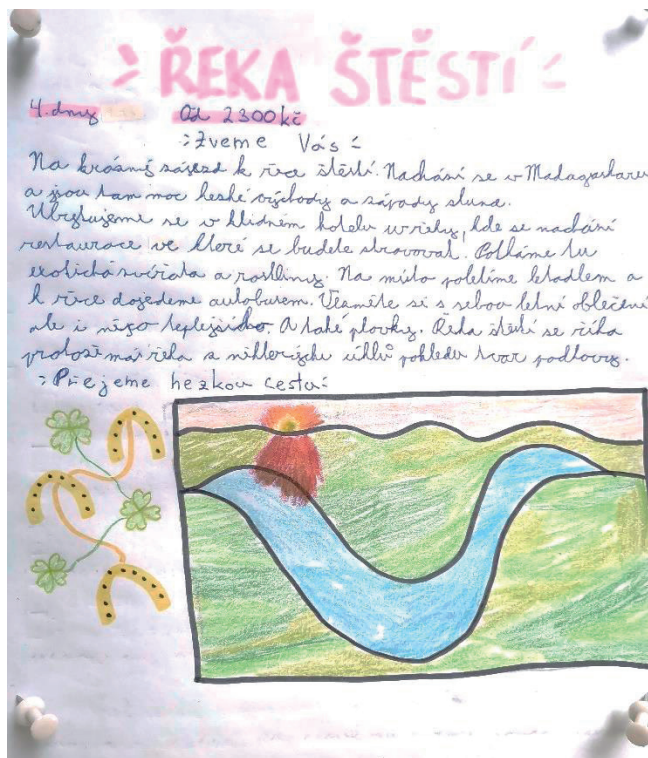 ŘEKA ŠTĚSTÍ
4. dny Od 2300 kč
Zveme Vás
Na krásný zájezd k řece štěstí. Nachází se v Madagaskaru
a jsou tam moc heské východy a západy
Ubytujeme se v klidném hotelu u řeky, kde se nachází
restaurace ve které se budete stravovat. Potkáme tu
exotická zvířata a rostliny. Na místo poletíme letadlem a
k řece dojedeme autobusem. si s sebou letní oblečení
ale i něco teplejšího. A také plavky. štěstí se říká
protože má řeka z některých úhlů pohledu tvar podkovy.
Přejeme hezkou cestu